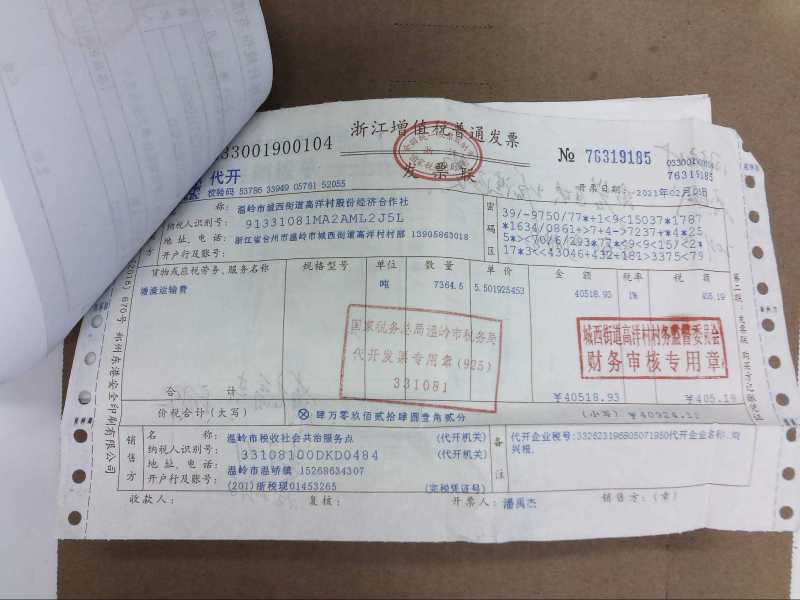 033001900104
浙江增值税普通发票
发票联
№ 76319185
033001900104
76319185
代开
校验码 53786 33949 05761 52055
开票日期：2021年02月01日
名 称：温岭市城西街道高洋村股份经济合作社
纳税人识别号：91331081MA2AML2J5L
地 址、电 话：浙江省台州市温岭市城西街道高洋村村部 13905863018
开户行及账号：
密码区
39/-9750/77*+1<9<15037*1787
*1634/0861+>7+4->7237+*4*25
5*><70/6/293*77*<9<9<15/<2*
17*3<<43046+432+181>3375<79
货物或应税劳务、服务名称 规格型号 单位 数量 单价 金额 税率 税额
塘渣运输费 吨 7364.5 5.501925453 40518.93 1% 405.19
国家税务总局温岭市税务局
代开发票专用章(925)
331081
城西街道高洋村村务监督委员会
财务审核专用章
合 计 ¥40518.93 ¥405.19
价税合计（大写） ⊗ 肆万零玖佰贰拾肆圆壹角贰分 （小写）¥40924.12
销售方
名 称：温岭市税收社会共治服务点 (代开机关)
纳税人识别号：33108100DKD0484 (代开机关)
地 址、电 话：温岭市温峤镇 15268634307
开户行及账号：(201)浙税现01453265 (完税凭证号)
备注
代开企业税号:332623196805071950代开企业名称:
兴根.
收款人： 复核： 开票人：潘禹杰 销售方：（章）
670号 杭州东港安全印刷有限公司
第二联：发票联 购买方记账凭证